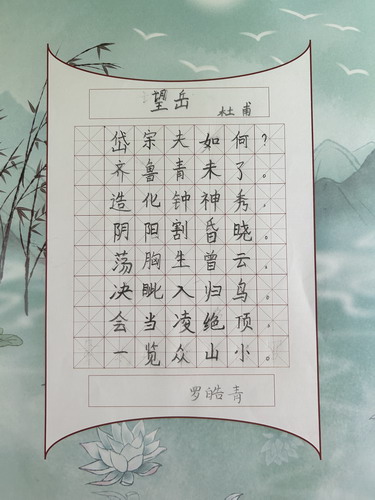 望岳
杜甫
岱宗夫如何？
齐鲁青未了。
造化钟神秀，
阴阳割昏晓。
荡胸生曾云，
决眦入归鸟。
会当凌绝顶，
一览众山小。
罗皓青